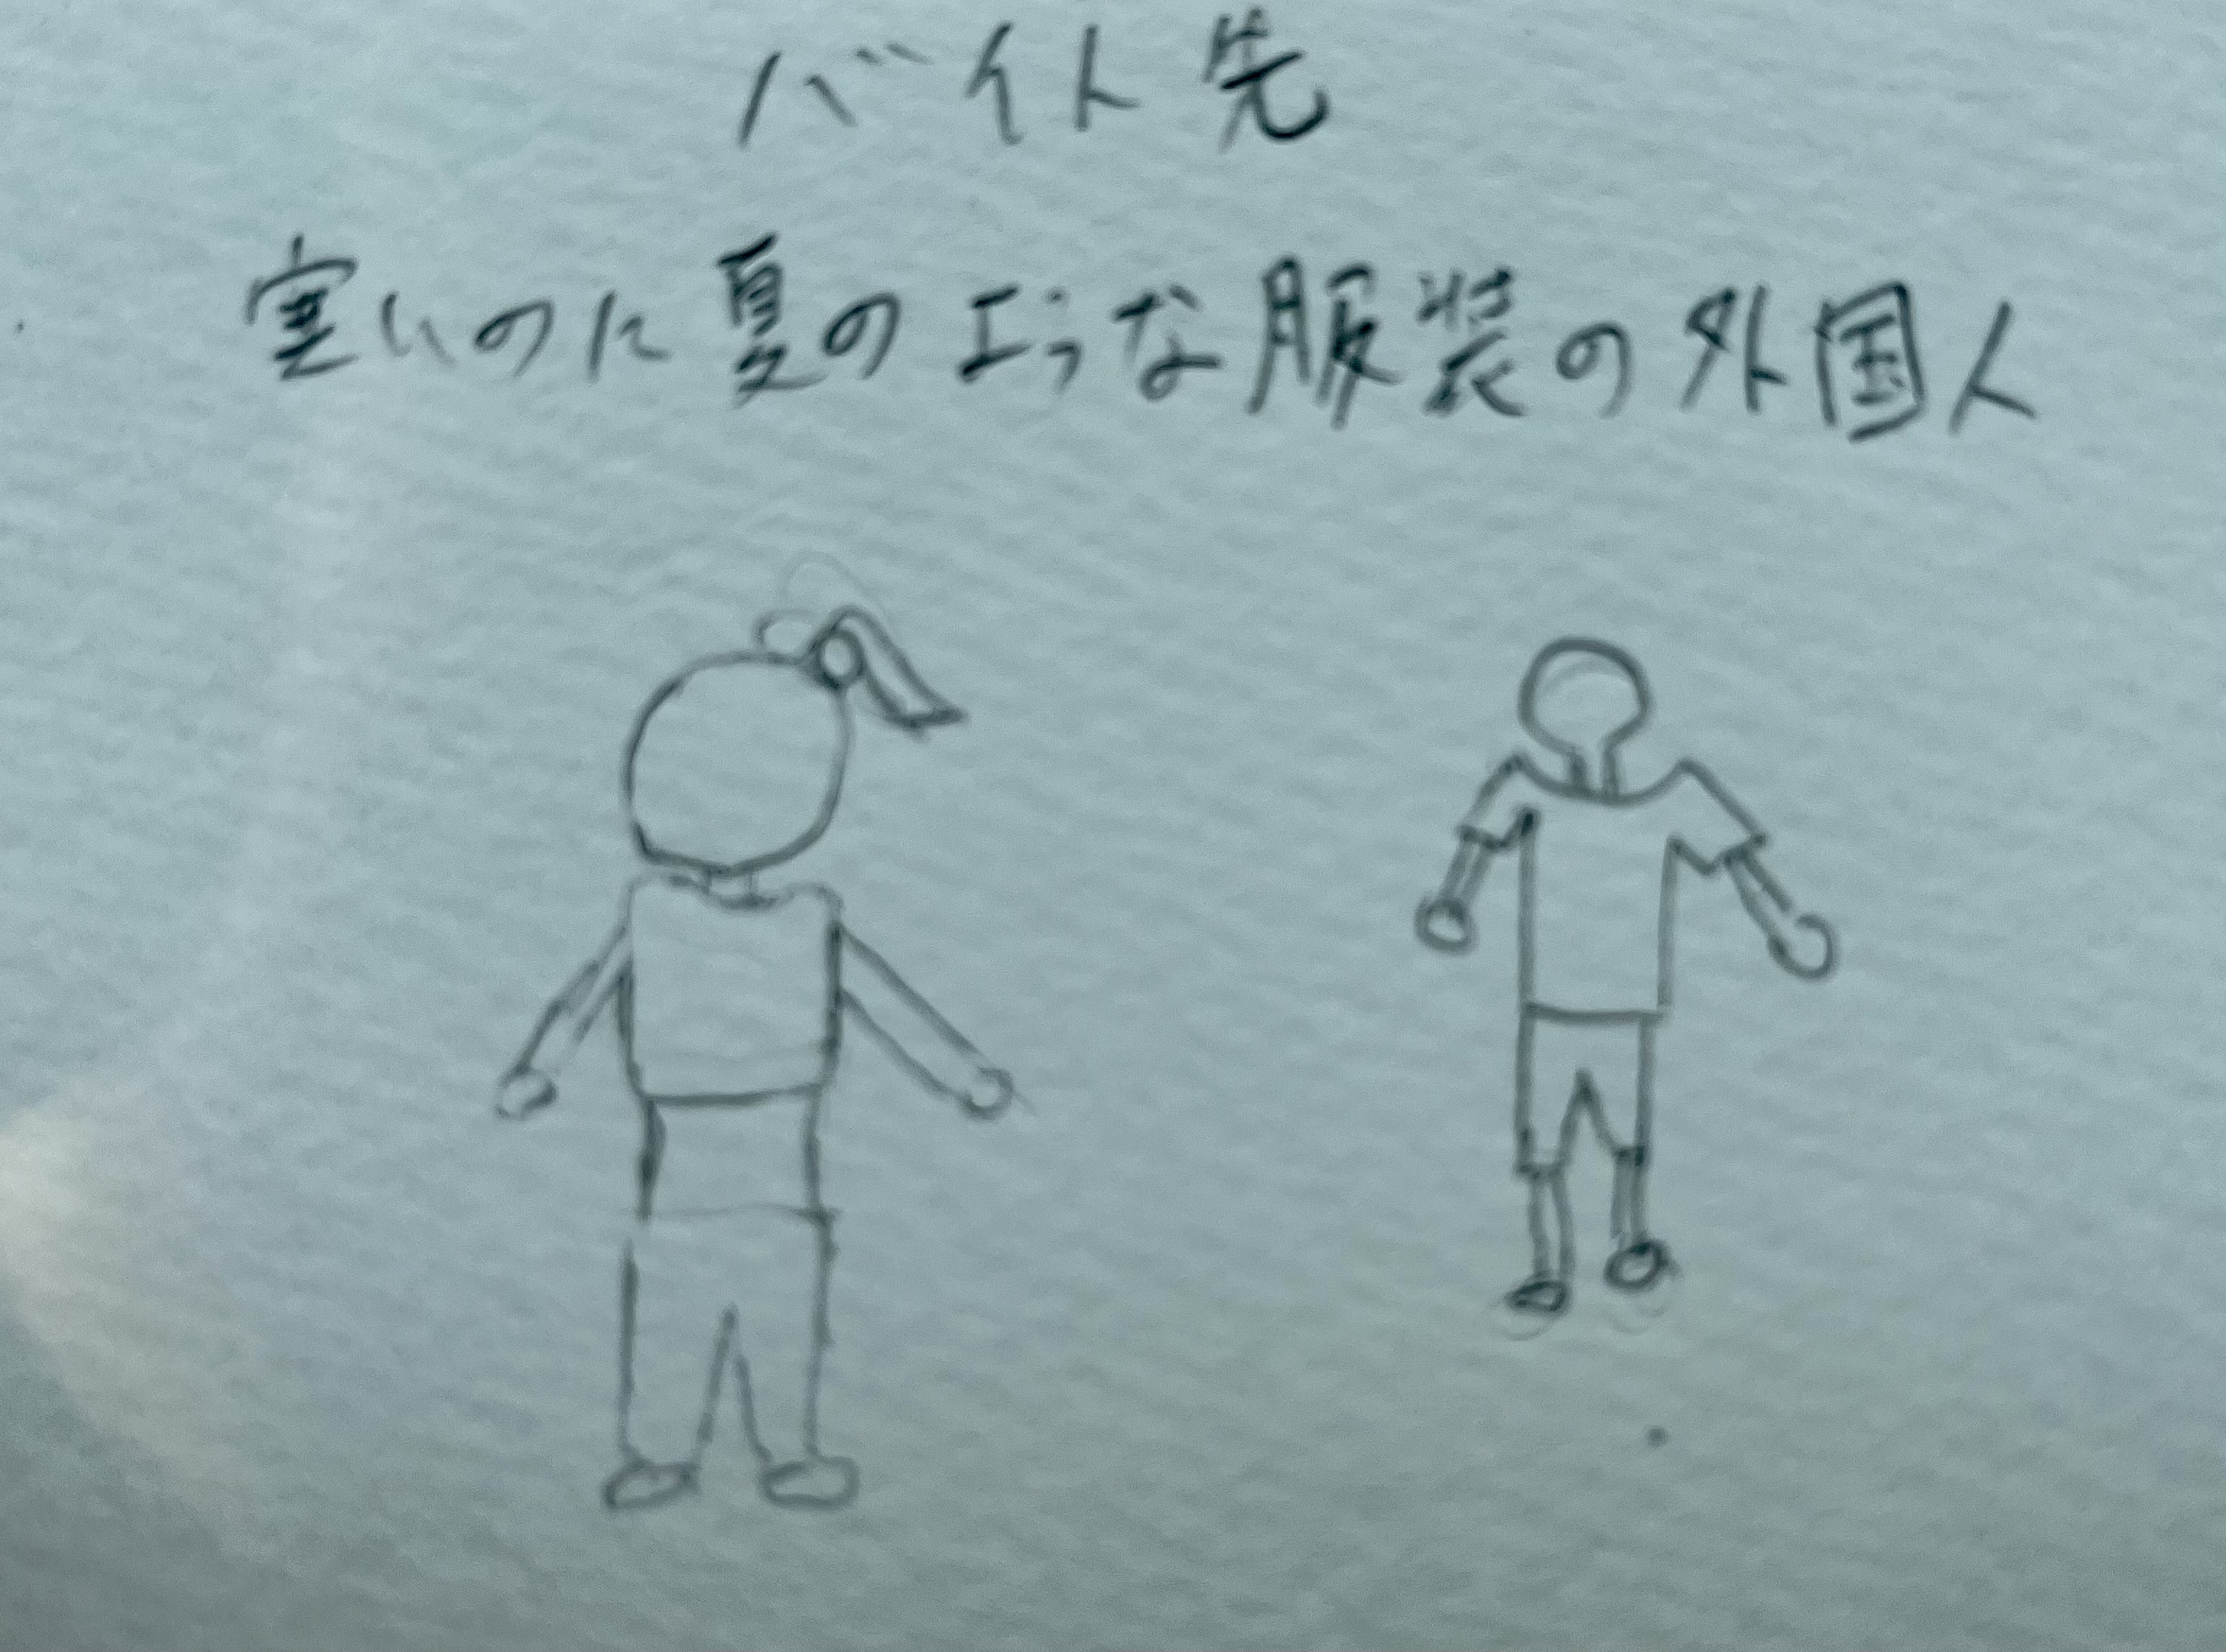 バイト先
寒いのに夏のような服装の外国人